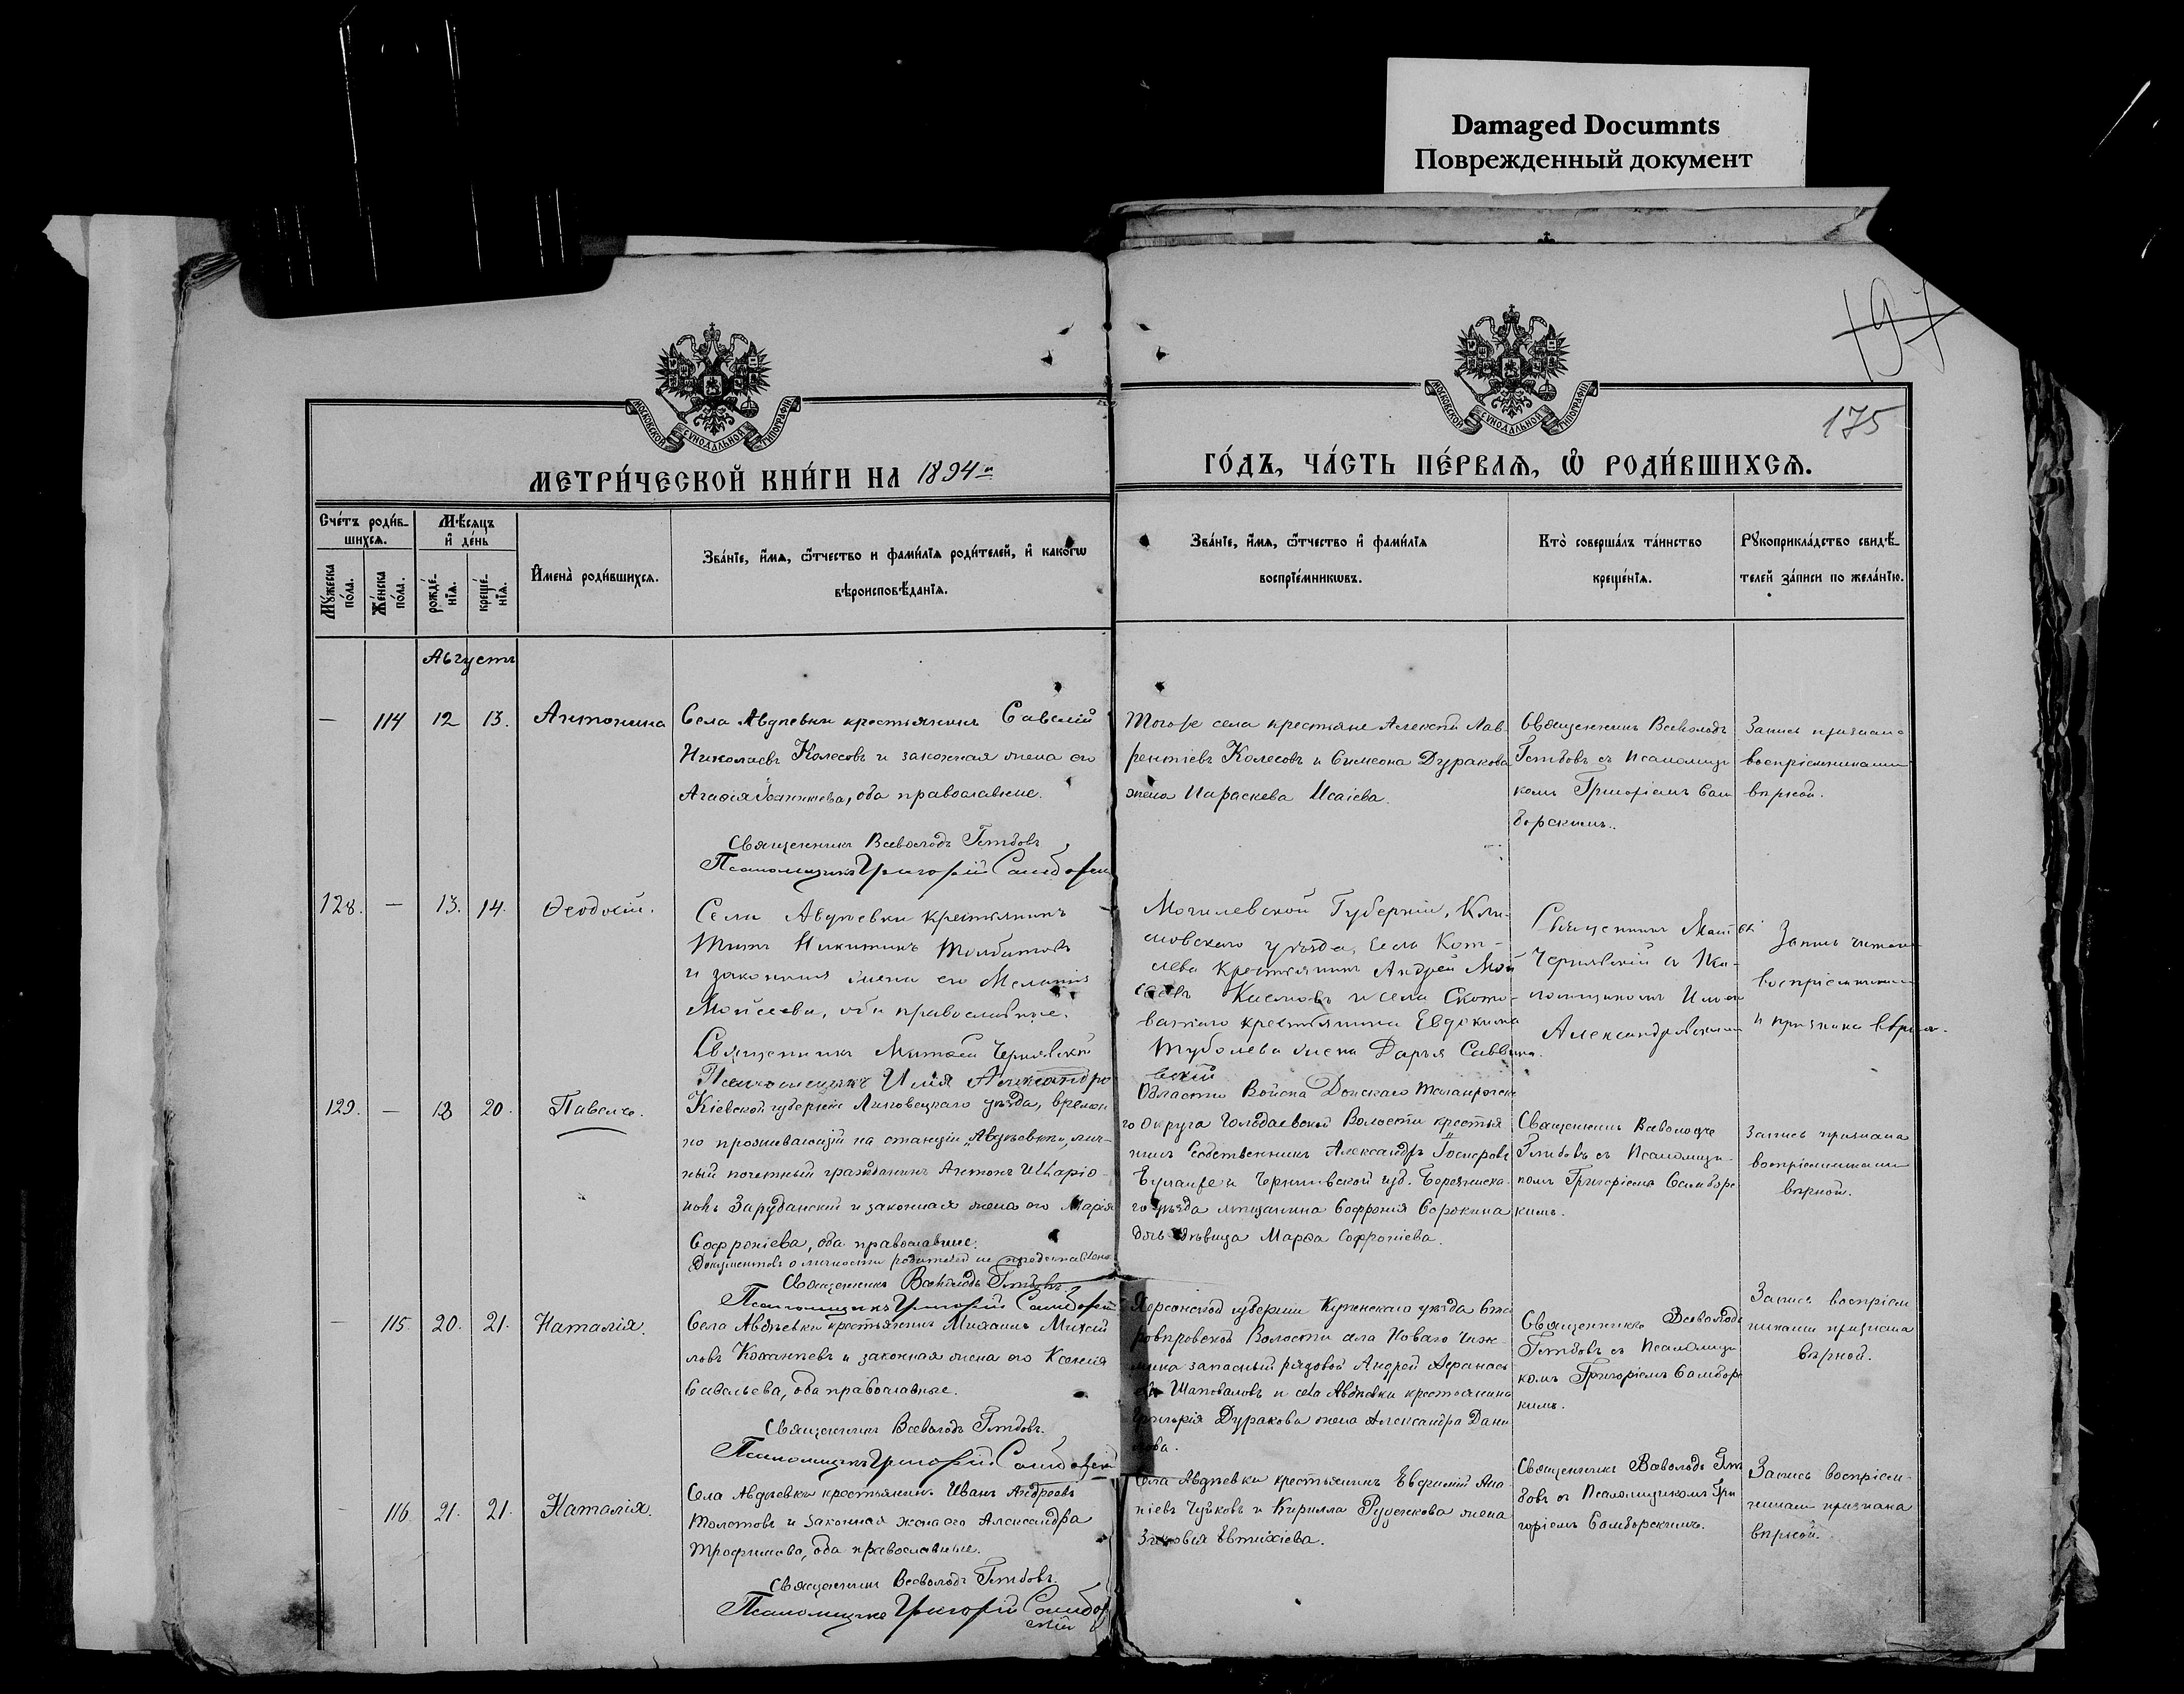 Damaged Documnts
Поврежденный документ
197
175
МОСКОВСКОЙ СУНОДАЛЬНОЙ ТИПОГРАФІИ
МОСКОВСКОЙ СУНОДАЛЬНОЙ ТИПОГРАФІИ
МЕТРИ́ЧЕСКОЙ КНИ́ГИ НА 1894й
ГО́ДЪ, ЧА́СТЬ ПЕ́РВАѦ, Ѡ҆ РОДИ́ВШИХСѦ.
Сче́тъ роди́в-
шихсѧ.
Мѣ́сѧцъ
и҆ де́нь
Мꙋ́жеска по́ла.
Же́нска по́ла.
рожде́-нїѧ.
креще́-нїѧ.
И҆мена̀ роди́вшихсѧ.
Зва́нїе, и҆́мѧ, ѻ҆́тчество и фами́лїѧ роди́телей, и҆ како́гѡ
вѣроисповѣ́данїѧ.
Зва́нїе, и҆́мѧ, ѻ҆́тчество и҆ фами́лїѧ
воспрїе́мникѡвъ.
Кто̀ соверша́лъ та́инство
креще́нїѧ.
Рꙋкоприкла́дство свидѣ́-
телей за́писи по жела́нїю.
Августъ
— 114 12 13. Антонина
Села Авдѣевки крестьянинъ Савелій
Николаевъ Колесовъ и законная жена его
Агаѳія, оба православные.
Священникъ Всеволодъ Глѣбовъ
Псаломщикъ Григорій Самборскі
Тогоже села крестьяне Алексѣй Лав-
рентіевъ Колесовъ и Симеона Дуракова
жена Параскева Исаіева.
Священникъ Всеволодъ
Глѣбовъ съ псаломщи
комъ Григоріемъ Сам
борскимъ.
Запись признана
воспріемниками
вѣрной.
128. — 13. 14. Ѳеодосій.
Села Авдѣевки крестьянинъ
Титъ Никитинъ Толбатовъ
и законная жена его Меланія
Мойсеева, оба православные.
Священникъ Матѳей Чернявскій
Псаломщикъ Илія Александро
вскій
Могилевской Губерніи, Кли-
мовскаго уѣзда, села Кот-
лева крестьянинъ Андрей Мой
сеевъ и села Ското-
ватаго крестьянина Евдокима
Туболева жена Дарья Саввина.
Священникъ Матѳей
Чернявскій съ Пса-
ломщикомъ Иліею
Александровскимъ
Запись читана
воспріемниками
и признана вѣрной.
129. — 18 20. Павелъ.
Кіевской губерніи Липовецкаго уѣзда, времен
но проживающій на станціи „Авдѣевка", лич-
ный почетный гражданинъ Антонъ Иларіо-
новъ Заруданскій и законная жена его Марія
Софроніева, оба православные.
Документовъ о личности родителей не представлено
Священникъ Всеволодъ Глѣбовъ.
Псаломщикъ Григорій Самборскій
Области Войска Донскаго Таганрогска
го округа Голодаевской Волости крестья
нинъ Собственникъ Александръ
и Черниговской губ. Борзнинска
го уѣзда мѣщанина Софронія Сорокина
дочь дѣвица Марѳа Софроніева.
Священникъ Всеволодъ
Глѣбовъ съ Псаломщи-
комъ Григоріемъ Самборс
кимъ.
Запись признана
воспріемниками
вѣрной.
— 115. 20. 21. Наталія.
Села Авдѣевки крестьянинъ Михаилъ Михай
ловъ и законная жена его Ксенія
Савельева, оба православные.
Священникъ Всеволодъ Глѣбовъ.
Псаломщикъ Григорій Самборскій
Херсонской губерніи уѣзда
Волости села Новаго
запасный рядовой Андрей Аѳанась
евъ Шаповаловъ и села Авдѣевки крестьянина
Григорія Дуракова жена Александра Дани
лова.
Священникъ Всеволодъ
Глѣбовъ съ Псаломщи
комъ Григоріемъ Самборс
кимъ.
Запись воспріем
никами признана
вѣрной.
— 116. 21. 21. Наталія.
Села Авдѣевки крестьянинъ Иванъ Андреевъ
Толстовъ и законная жена его Александра
Трофимова, оба православные.
Священникъ Всеволодъ Глѣбовъ.
Псаломщикъ Григорій Самбор
скій
Села Авдѣевки крестьянинъ Евфимій Ана
ніевъ Чуйковъ и Кирилла Руденкова жена
Зиновія Евтихіева.
Священникъ Всеволодъ Глѣ
бовъ съ Псаломщикомъ Гри
горіемъ Самборскимъ.
Запись воспріем-
никами признана
вѣрной.